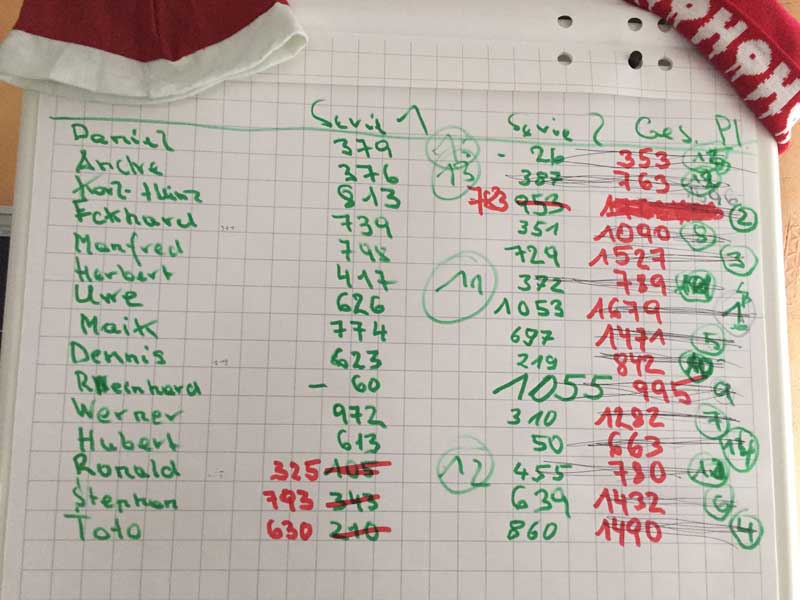 HOHOH
Serie 1 Serie 2 Ges. Pl
Daniel 379 - 26 353 15
Andre 376 13 387 763
Karl-Heinz 813 783 953 2
Eckhard 739 351 1090 8
Manfred 798 729 1527 3
Herbert 417 11 372 789
Uwe 626 1053 1679 1
Maik 774 697 1471 5
Dennis 623 219 842 10
Reinhard - 60 1055 995 9
Werner 972 310 1282 7
Hubert 613 50 663 14
Ronald 325 105 12 455 780 12
Stephan 793 343 639 1432 6
Toto 630 210 860 1490 4